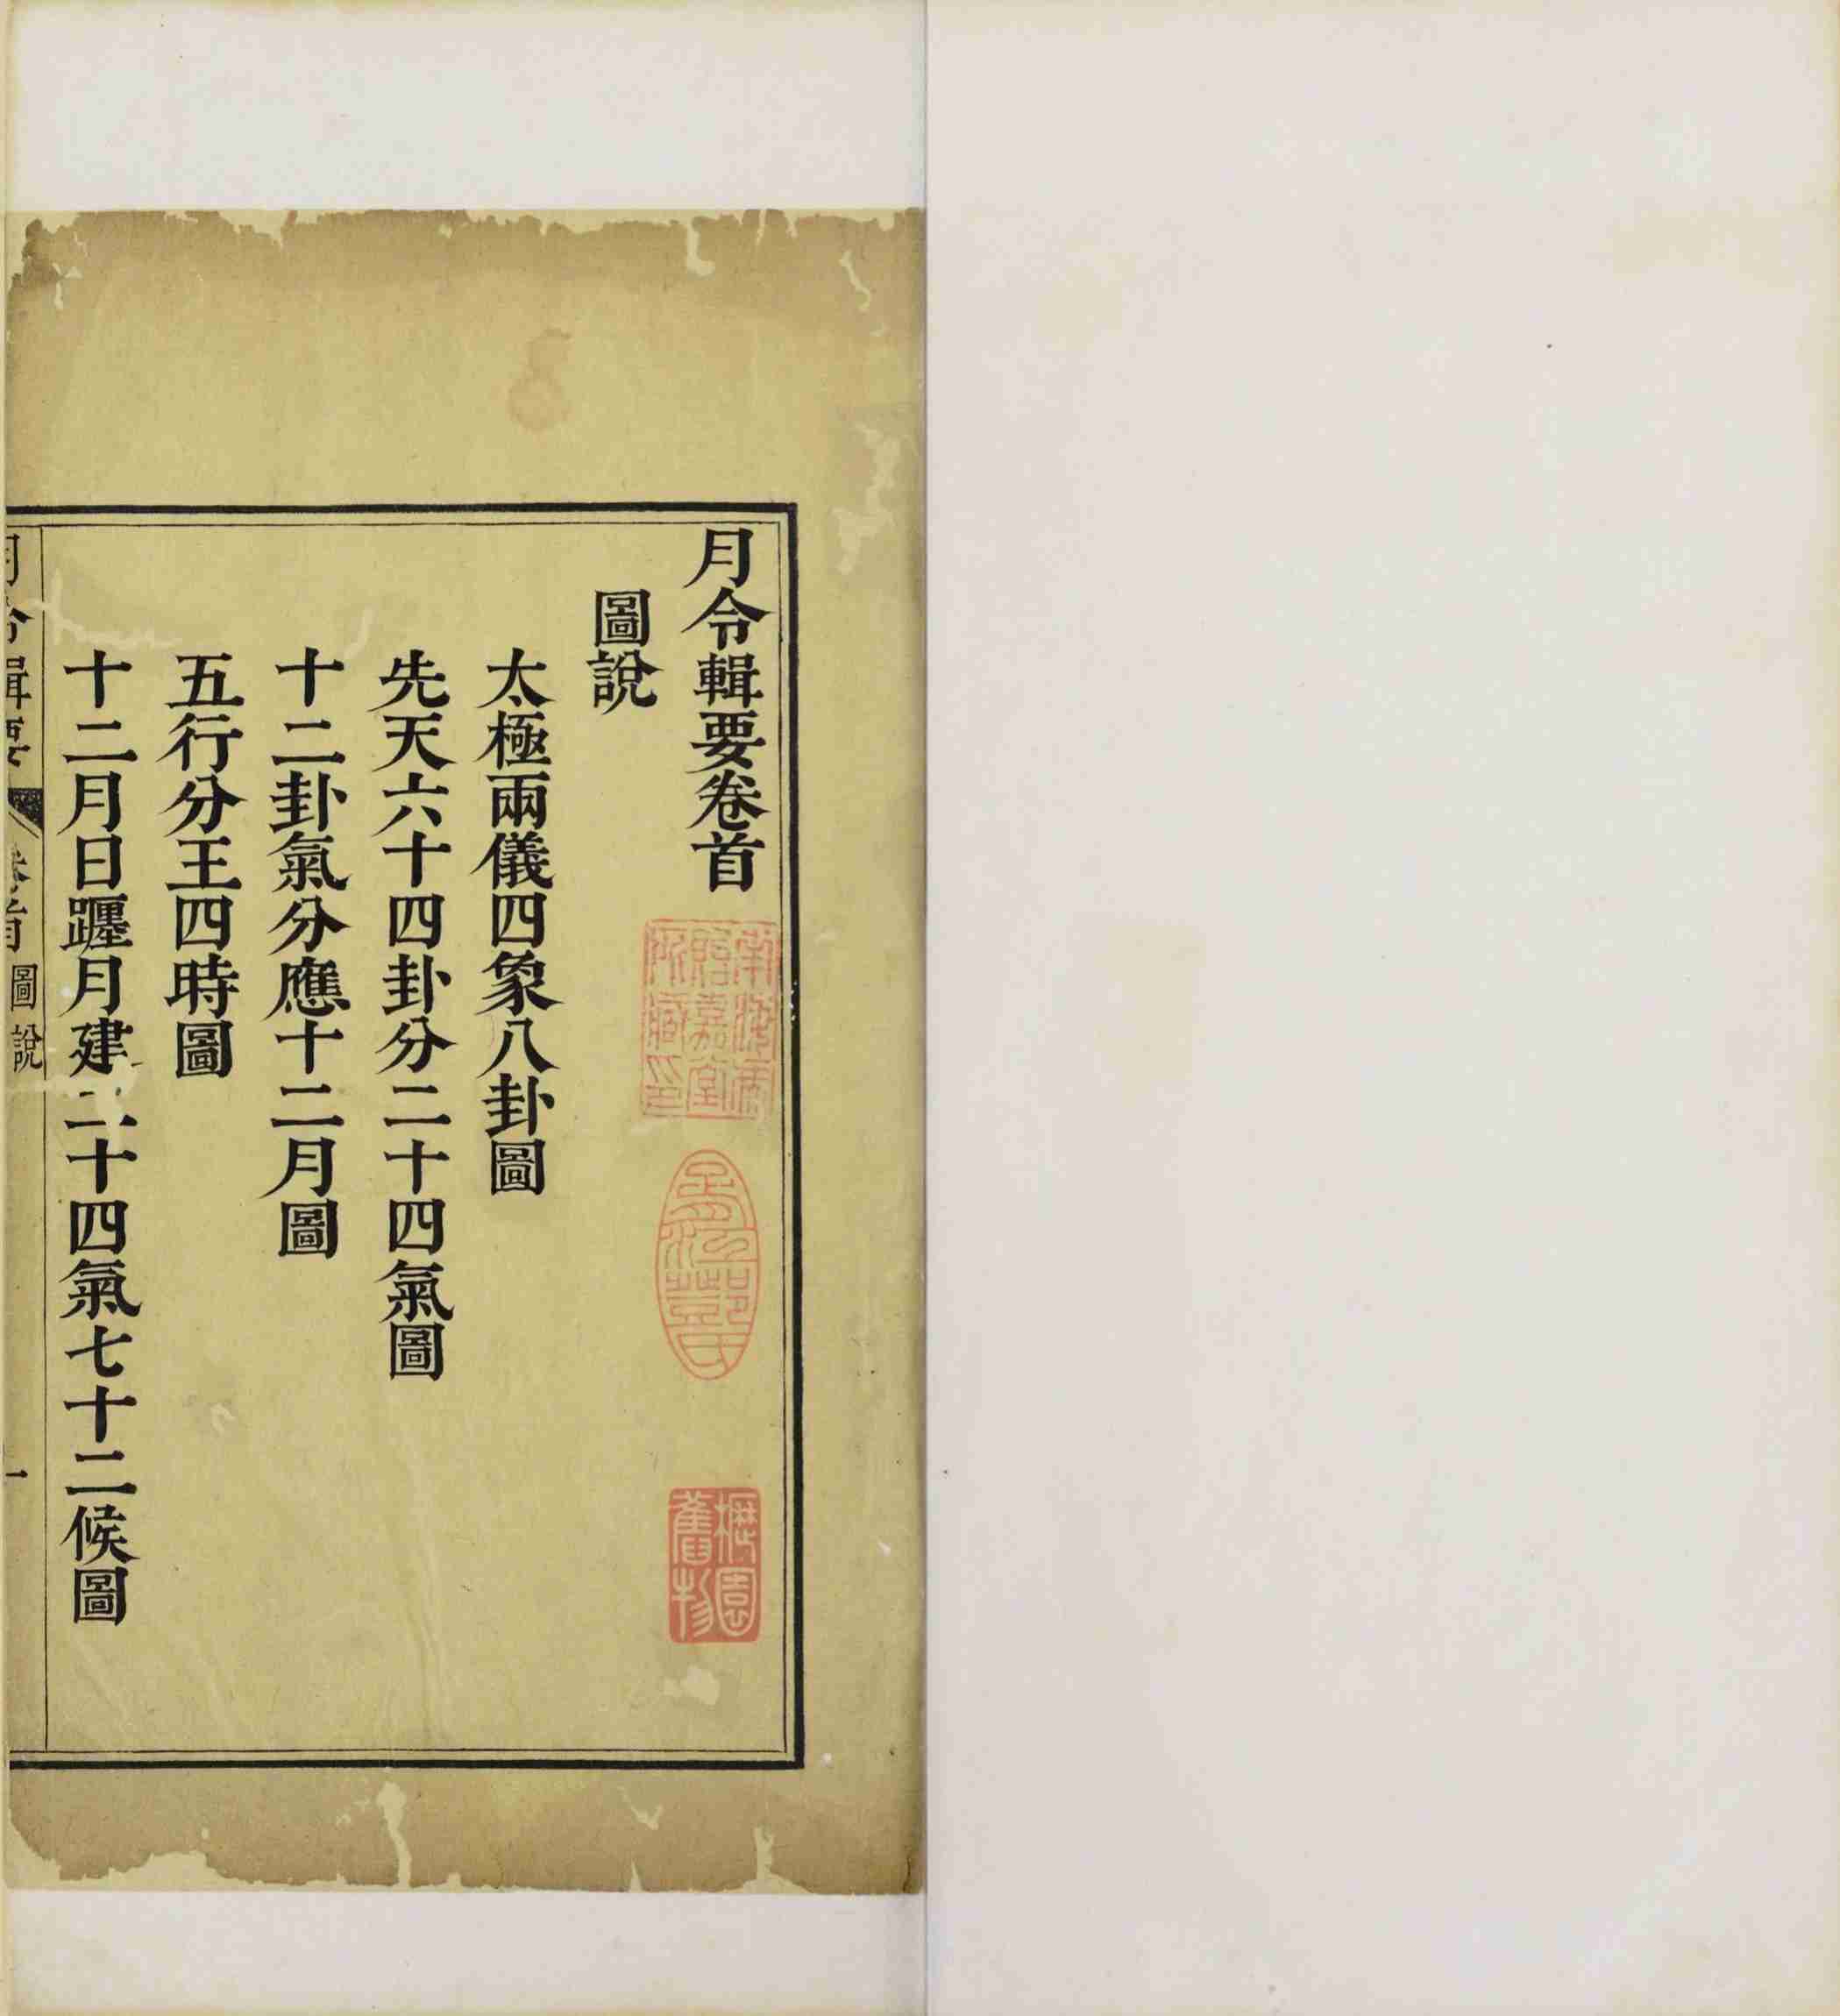 月令輯要卷首
圖說
太極兩儀四象八卦圖
先天六十四卦分二十四氣圖
十二卦氣分應十二月圖
五行分王四時圖
十二月日躔月建二十四氣七十二候圖
月令輯要 卷首 圖說 一
櫪園舊物